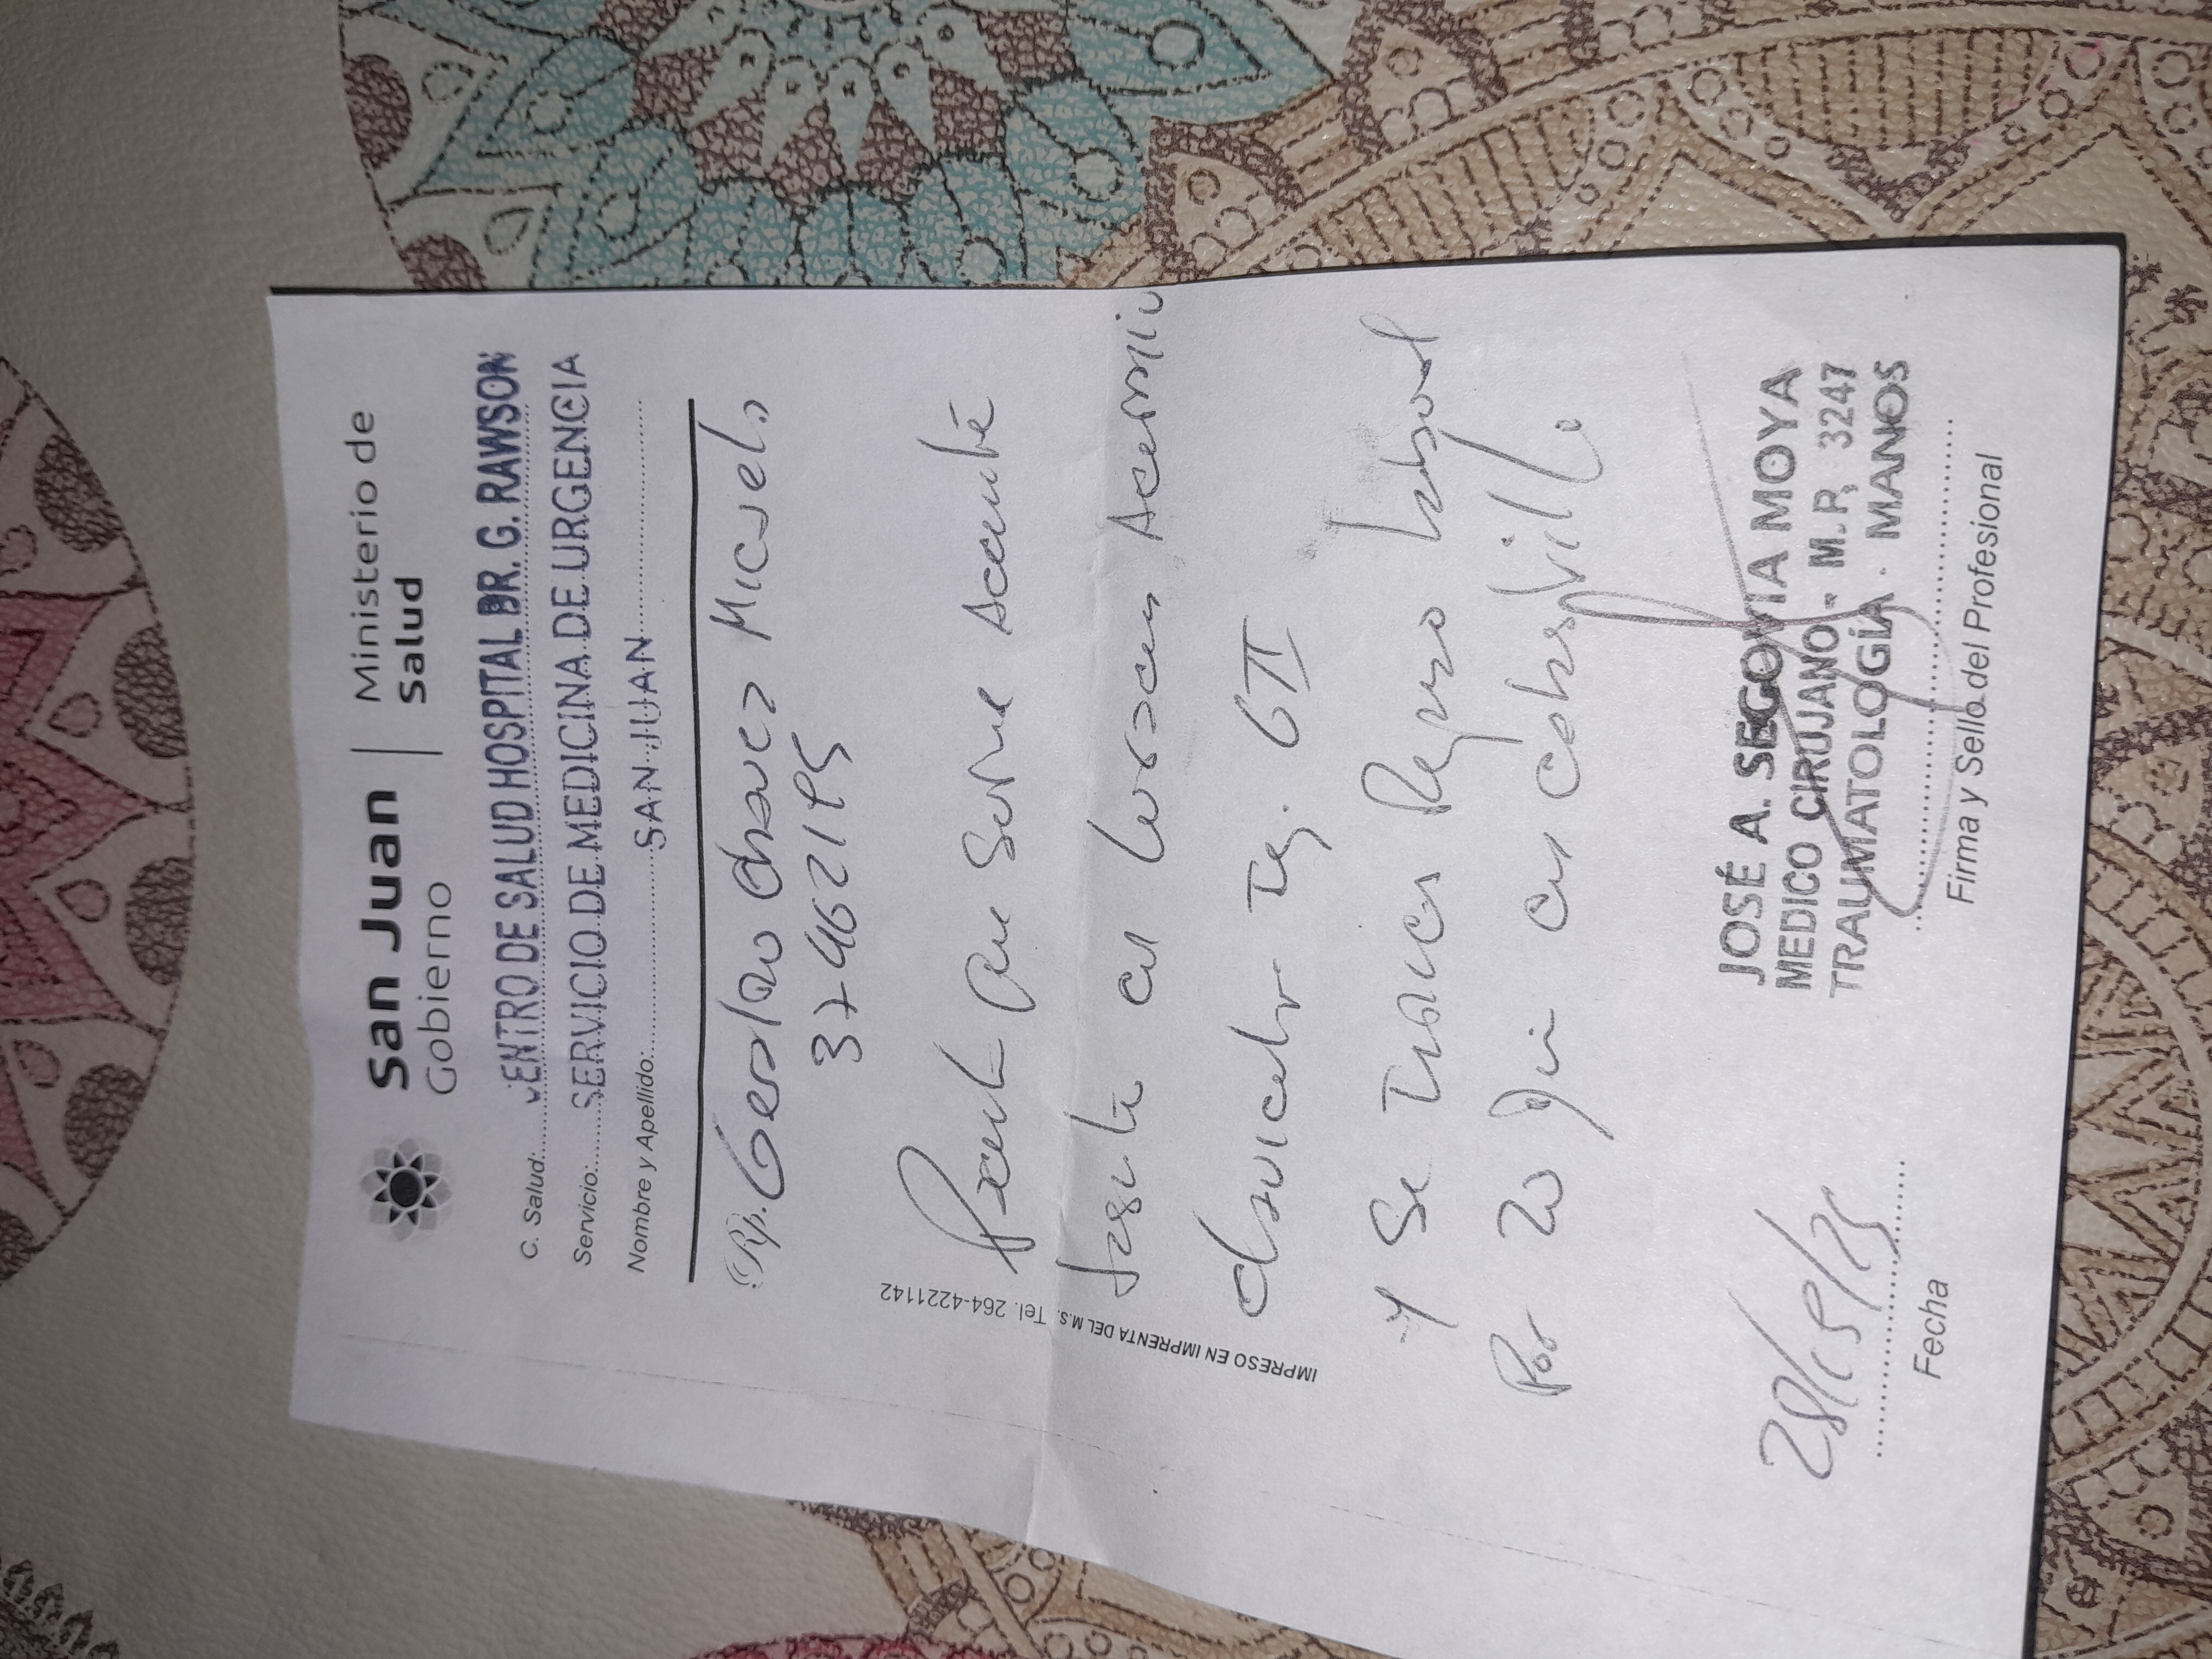 San Juan
Gobierno
Ministerio de
Salud
C. Salud: CENTRO DE SALUD HOSPITAL DR. G. RAWSON
Servicio: SERVICIO DE MEDICINA DE URGENCIA
Nombre y Apellido: SAN JUAN
Rp. Chavez Micael
37462195
que sufre
luxacion
clavicular Izq. GII
y se indica Reposo laboral
Por 20
28/05/25
Fecha
JOSÉ A. SEGOVIA MOYA
MEDICO CIRUJANO - M.P. 3247
TRAUMATOLOGÍA - MANOS
Firma y Sello del Profesional
IMPRESO EN IMPRENTA DEL M.S. Tel. 264-4221142